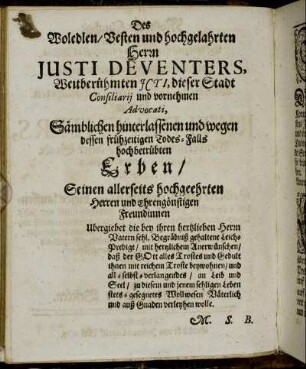 Des
Woledlen/Vesten und hochgelahrten
Herrn
JUSTI DEVENTERS,
Weitberühmten JCTI, dieser Stadt
Consiliarij und vornehmen
Advocati,
Sämblichen hinterlassenen und wegen
dessen frühzeitigen Todes-Falls
hochbetrübten
Erben/
Seinen allerseits hochgeehrten
Herren und Ehrengönstigen
Freundinnen
Ubergiebet die bey ihren hertzlieben Herrn
Vatern sehl. Begräbniß gehaltene Leich-
Predige/ mit hertzlichem Anerwünschen/
daß der GOtt alles Trostes und Gedult
ihnen mit reichem Troste beywohnen/ und
all-selbst-verlangendes/ an Leib und
Seel/ zu diesem und jenem sehligen Leben
stets-gesegnetes Wollwesen Väterlich
und auß Gnaden verleyhen wolle.
M. S. B.